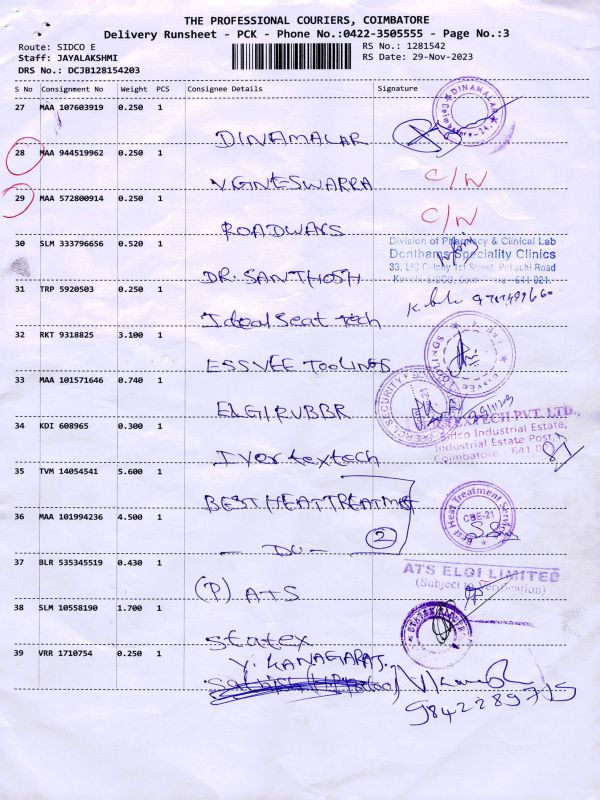 THE PROFESSIONAL COURIERS, COIMBATORE
Delivery Runsheet - PCK - Phone No.:0422-3505555 - Page No.:3
Route: SIDCO E
RS No.: 1281542
Staff: JAYALAKSHMI
RS Date: 29-Nov-2023
DRS No.: DCJB128154203
S No Consignment No Weight PCS Consignee Details Signature
27 MAA 107603919 0.250 1
DINAMALAR
DINAMALAR
28 MAA 944519962 0.250 1
VGNESWARRA
C/N
29 MAA 572800914 0.250 1
ROADWAYS
C/N
30 SLM 333796656 0.520 1
Division of Pharmacy & Clinical Lab
Donthams Speciality Clinics
33, LIC Colony 1st Street, Pollachi Road
DR. SANTHOSH
641 021.
31 TRP 5920503 0.250 1
Ideal Seat tech
32 RKT 9318825 3.100 1
ESSVEE TOOLINGS
33 MAA 101571646 0.740 1
ELGI RUBBR
34 KDI 608965 0.300 1
TEXTECH PVT. LTD.,
Sidco Industrial Estate,
Industrial Estate Post
Coimbatore - 641 0
I Vertextech
35 TVM 14054541 5.600 1
BEST HEAT TREATMET
36 MAA 101994236 4.500 1
Best Heat Treatment Services
CBE-21
- DO -
2
37 BLR 535345519 0.430 1
ATS ELGI LIMITED
(Subject to Verification)
(P) ATS
38 SLM 10558190 1.700 1
Statex
39 VRR 1710754 0.250 1
V. KANAGARAJ.
9842289715